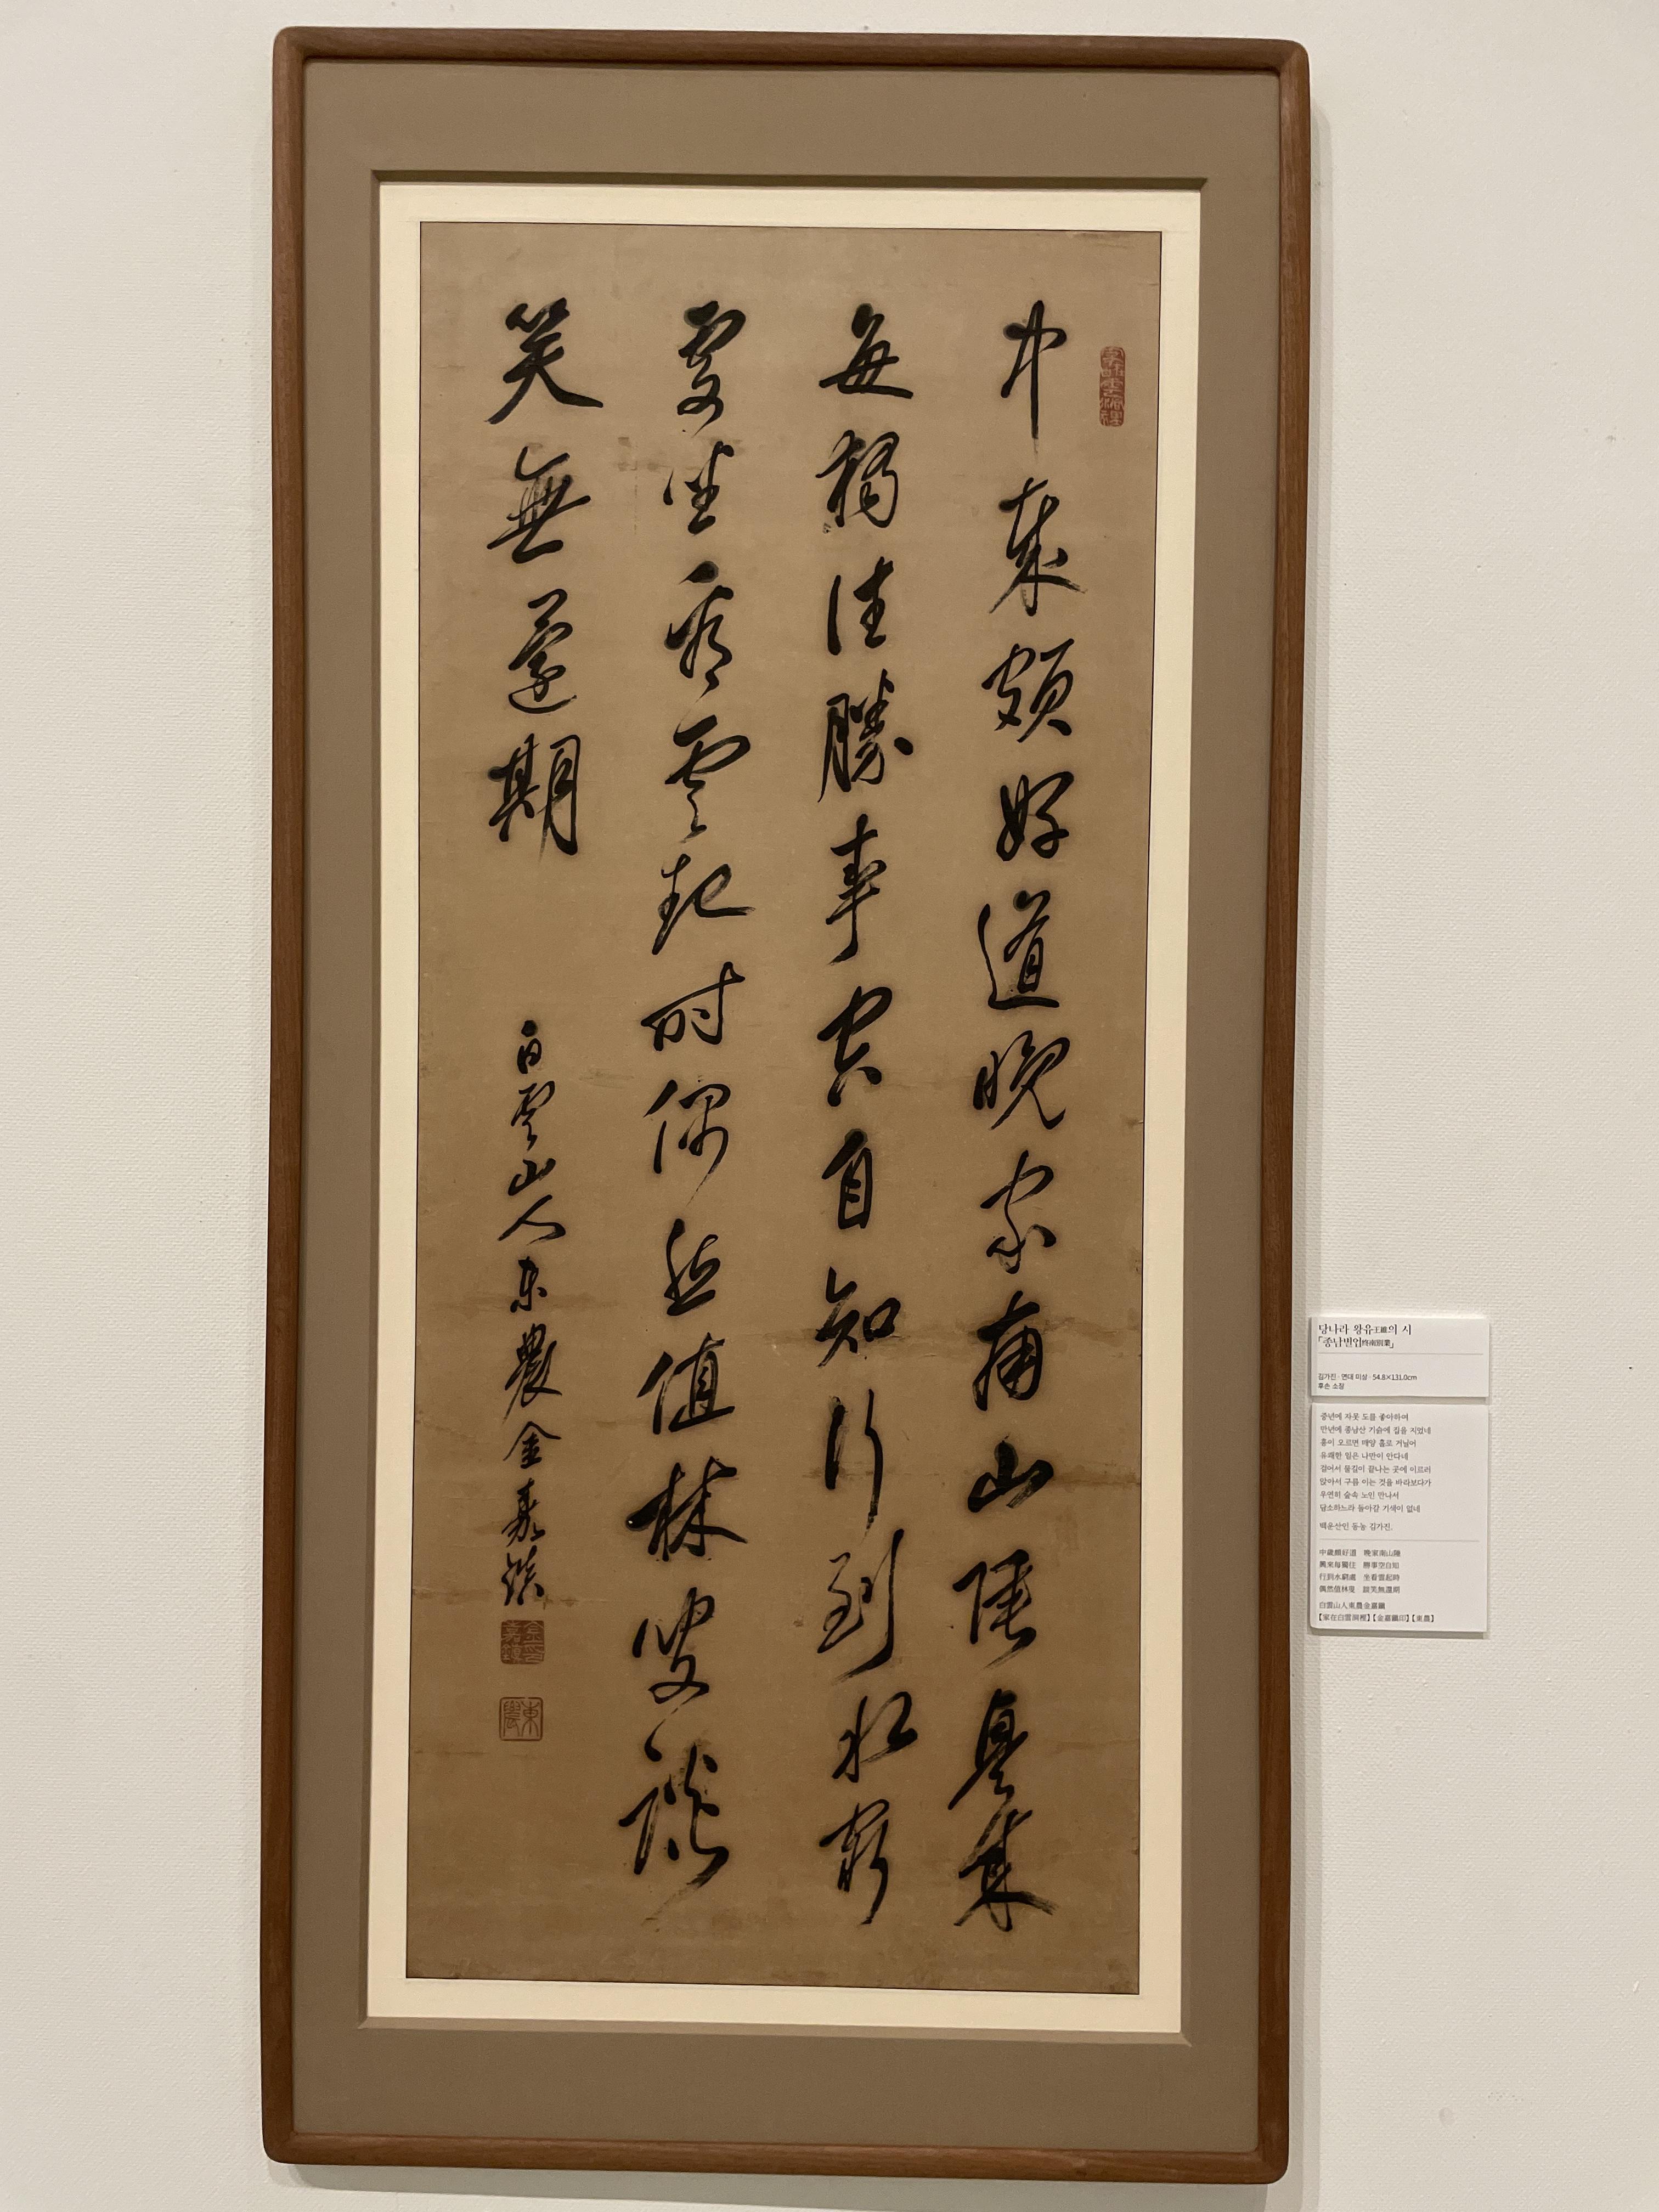 中歲頗好道晚家南山陲興來
每獨往勝事空自知行到水窮
處坐看雲起時偶然值林叟談
笑無還期
白雲山人東農金嘉鎮
家在白雲洞裡
金嘉鎮印
東農
당나라 왕유王維의 시
「종남별업終南別業」
김가진 · 연대 미상 · 54.8×131.0cm
후손 소장
중년에 자못 도를 좋아하여
만년에 종남산 기슭에 집을 지었네
흥이 오르면 매양 홀로 거닐어
유쾌한 일은 나만이 안다네
걸어서 물길이 끝나는 곳에 이르러
앉아서 구름 이는 것을 바라보다가
우연히 숲속 노인 만나서
담소하느라 돌아갈 기색이 없네
백운산인 동농 김가진.
中歲頗好道 晚家南山陲
興來每獨往 勝事空自知
行到水窮處 坐看雲起時
偶然值林叟 談笑無還期
白雲山人東農金嘉鎭
【家在白雲洞裡】【金嘉鎭印】【東農】